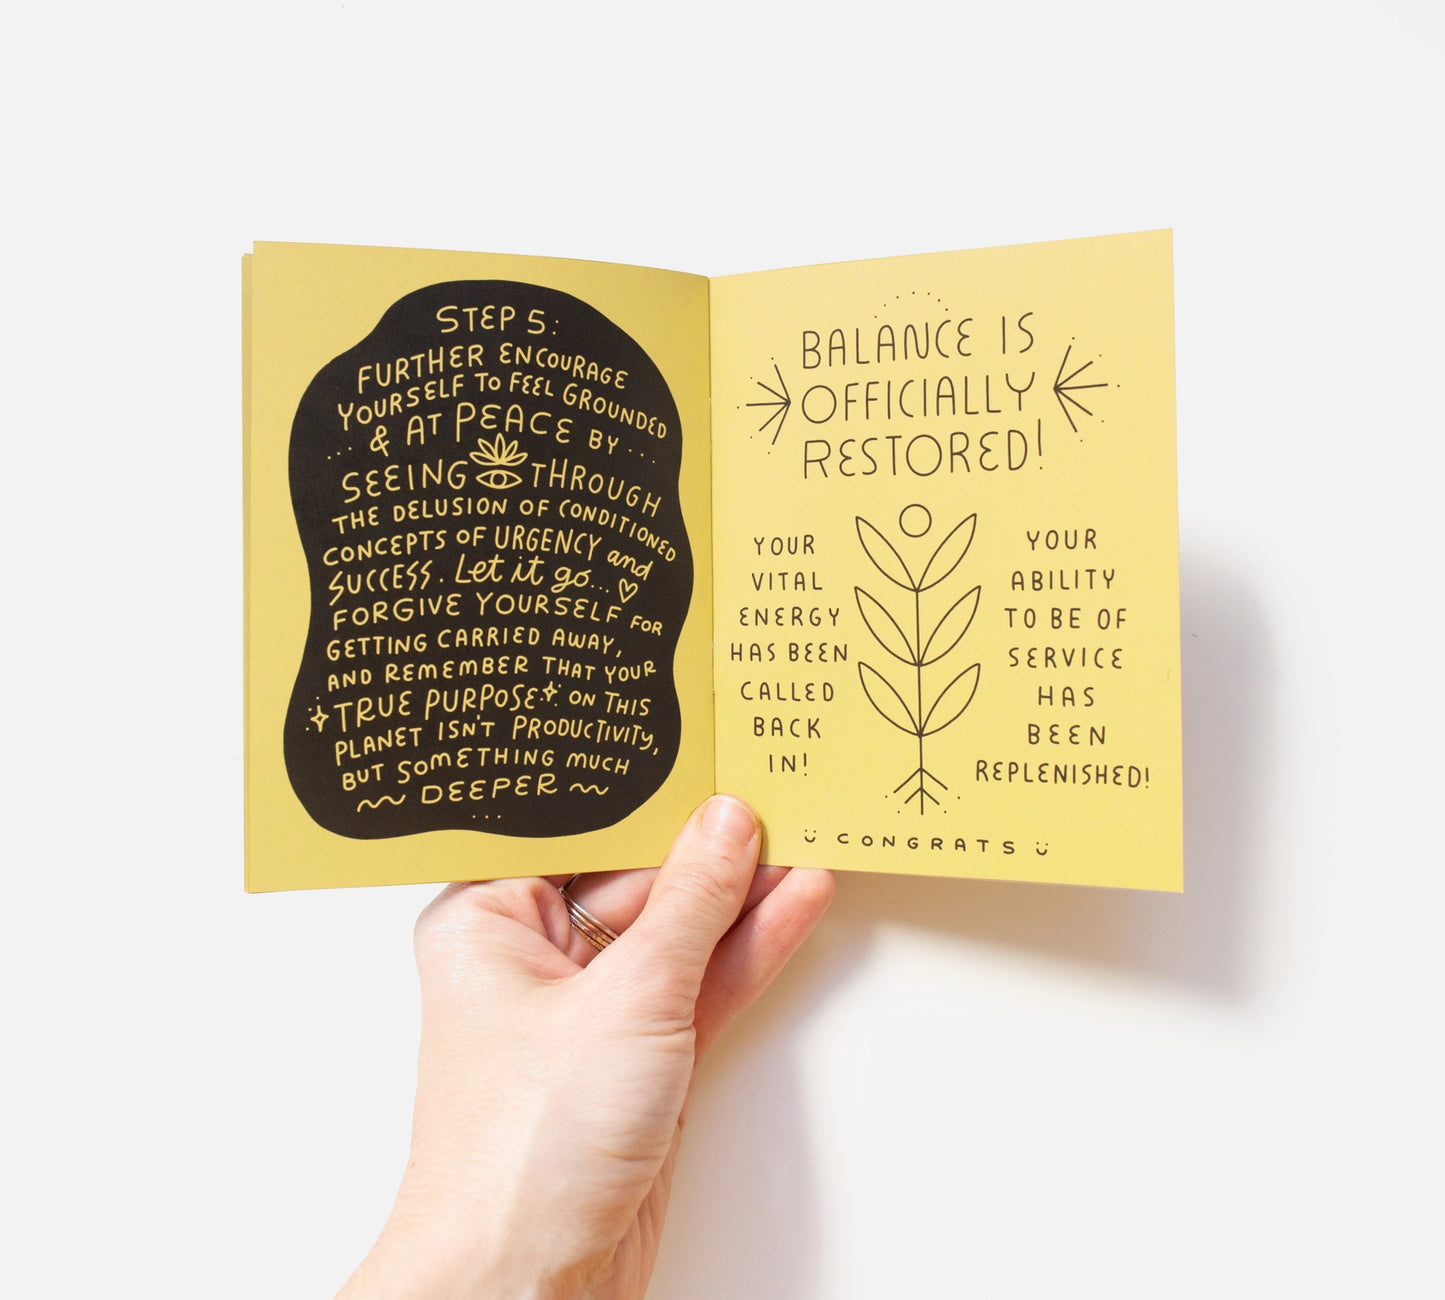 STEP 5:
FURTHER ENCOURAGE
YOURSELF TO FEEL GROUNDED
... & AT PEACE BY ...
SEEING THROUGH
THE DELUSION OF CONDITIONED
CONCEPTS OF URGENCY and
SUCCESS. Let it go...
FORGIVE YOURSELF FOR
GETTING CARRIED AWAY,
AND REMEMBER THAT YOUR
TRUE PURPOSE ON THIS
PLANET ISN'T PRODUCTIVITY,
BUT SOMETHING MUCH
DEEPER
...
BALANCE IS
OFFICIALLY
RESTORED!
YOUR
VITAL
ENERGY
HAS BEEN
CALLED
BACK
IN!
YOUR
ABILITY
TO BE OF
SERVICE
HAS
BEEN
REPLENISHED!
CONGRATS